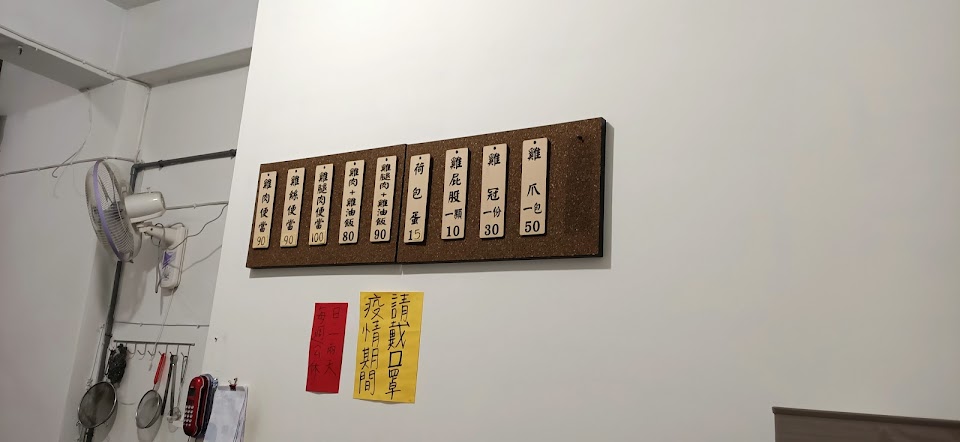 雞肉便當 90
雞絲便當 90
雞腿肉便當 100
雞肉+雞油飯 80
雞腿肉+雞油飯 90
荷包蛋 15
雞屁股 一顆 10
雞冠 一份 30
雞爪 一包 50
疫情期間
請戴口罩